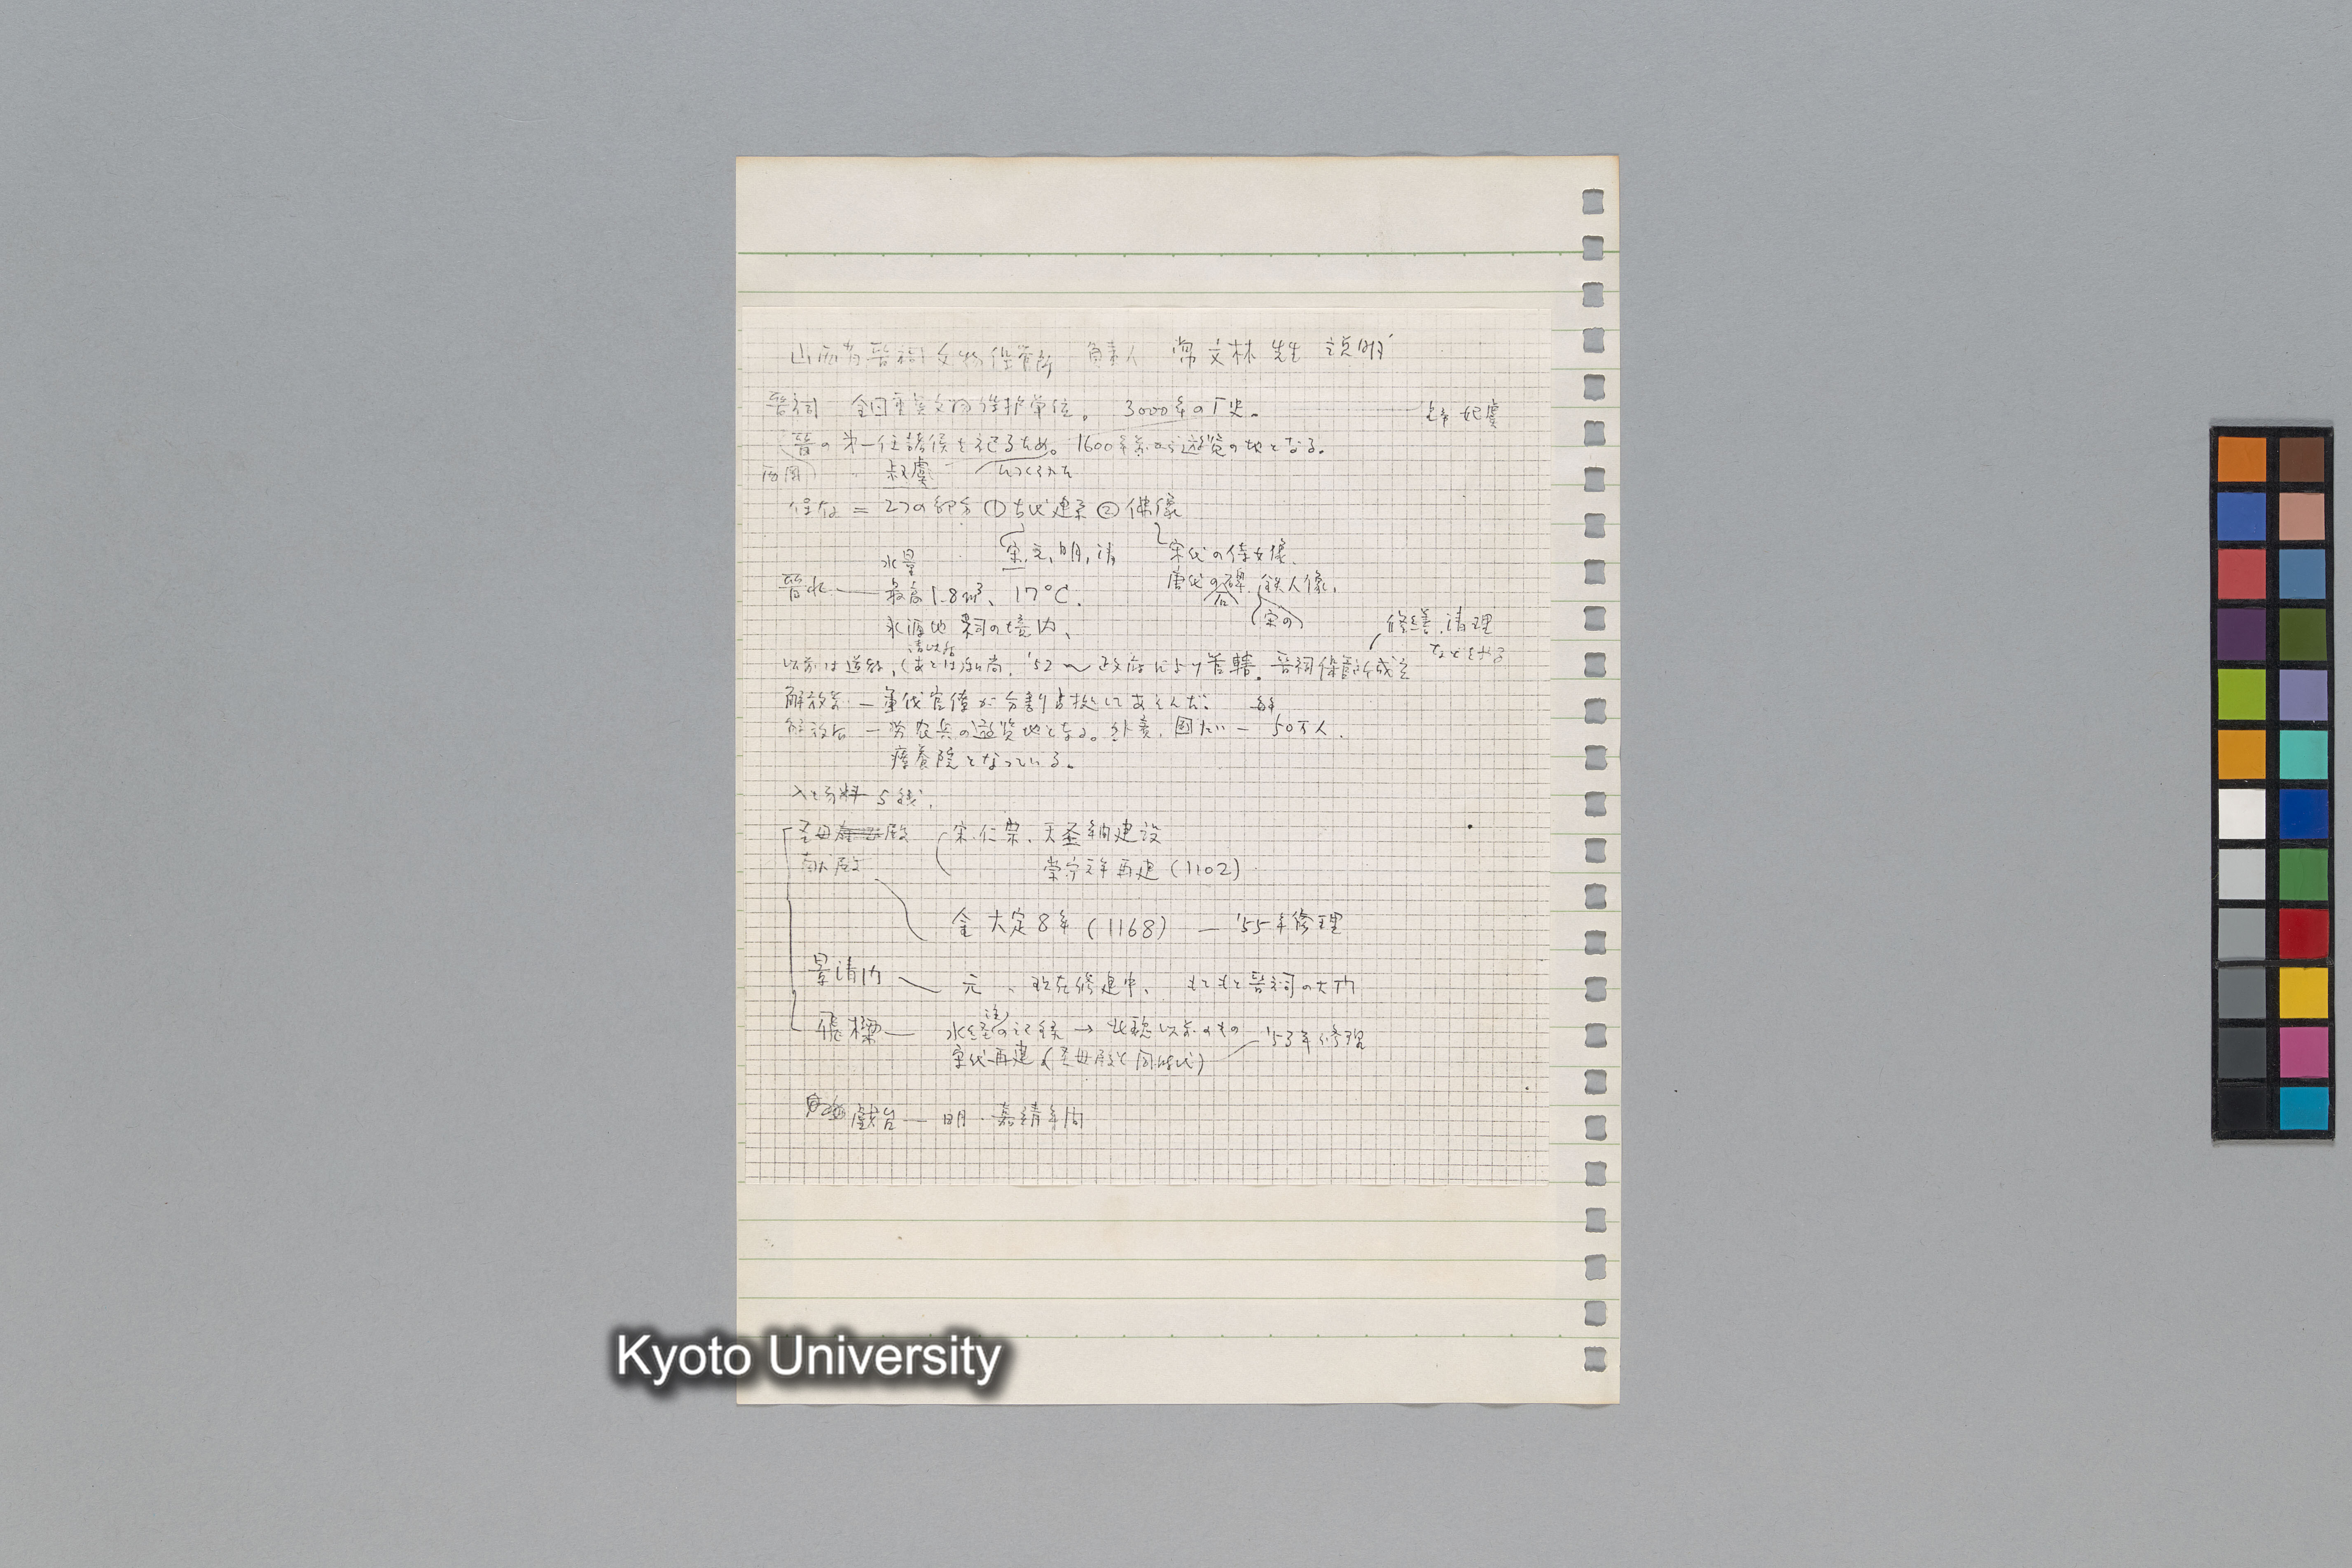 山西省晋祠文物保管所 負責人 常文林 先生 説明
晋祠 全国重要文物保护単位。 3000年の厂史。
姫虞
晋の第一任諸侯を祀るため。1600年前から遊覧の地となる。
西周 叔虞 につくられた
保存 = 2つの部分 ①古代建築 ②佛像
水量 宋,元,明,清 宋代の侍女像、
晋水 — 最高1.8m³、17℃. 唐代の碑. 鉄人像.
水源地 晋祠の境内、 (宋の) 修繕,清理
清以后 などを行う
以前は道教,(あとは)和尚. '52〜政府により管轄. 晋祠保管所成立
解放前 — 軍伐官僚が分割占拠してあそんだ。
解放后 — 労农兵の遊覧地となる。外賓. 50万人.
療養院となっている。
入場料 5銭.
圣母殿 宋.仁宗. 天圣年間建設
献殿 崇宁元年再建 (1102)
金 大定8年 (1168) — '55年修理
景清门 元 、現在修建中、 もともと晋祠の大门
飛樑 — 水経注の記録 → 北魏以前のもの '53年修理
宋代再建 (圣母殿と同時代)
戲台 — 明・嘉靖年间
Kyoto University